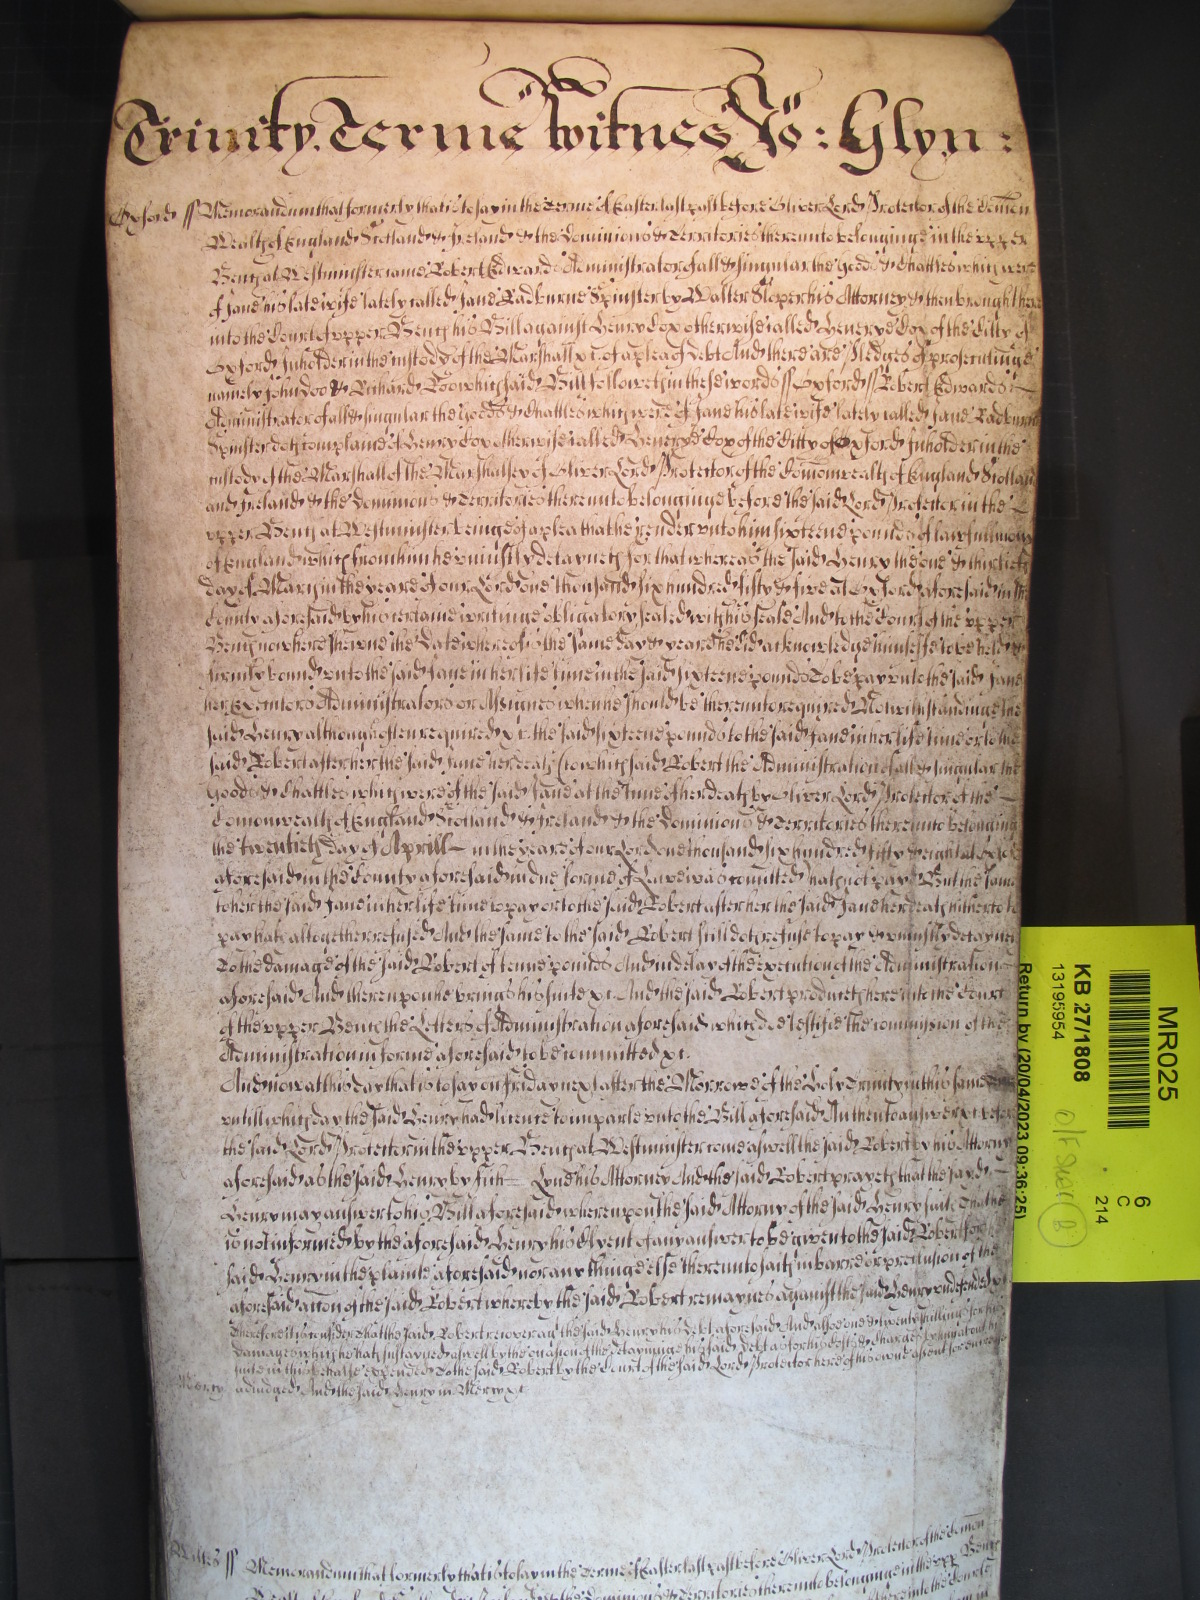 Trinity Terme Witnes Jo: Glyn:
Oxford ss Memorandum that formerly that is to say in the terme of Easter last past before Oliver Lord Protector of the Com̄on
Wealth of England Scotland & Ireland & the Dominions & Territories thereunto belonginge in the upper
Bench at Westminster came Robert Edwards Administrator of all & singular the goods & Chattles which were
of Jane his late wife lately called Jane Radburne Spinster by Walter Sloper his Attorney & then brought here
into the Court of upper Bench his Bill against Henry Cox otherwise called Henerye Cox of the Citty of
Oxford Inholder in the custody of the Marshall xc. of a plea of Debt And there are Pledges of prosecutinge
namely John Doo & Richard Roo which said Bill followeth in these words ss Oxford ss Robert Edwards
Administrator of all & singular the goods & Chattles which were of Jane his late wife lately called Jane Radburne
Spinster doth complaine of Henry Cox otherwise called Henerye Cox of the Citty of Oxford Inholder in the
custody of the Marshall of the Marshalsey of Oliver Lord Protector of the Com̄onwealth of England Scotland
and Ireland & the Dominions & Territories thereunto belonginge before the said Lord Protector in the
upper Bench at Westminster beinge of a plea that he render unto him sixteene pounds of lawfull mony
of England which from him he uniustly detayneth for that whereas the said Henry the one & thirtieth
day of March in the yeare of our Lord one thousand six hundred fifty & five at Oxford aforesaid in the
County aforesaid by his certaine writinge obligatory sealed with his seale And to the Court of the upper
Bench now here shewne the Date whereof is the same day & yeare he did acknowledge himselfe to be held &
firmly bound unto the said Jane in her life time in the said sixteene pounds To be pay unto the said Jane
her Executors Administrators or Assignes when he should be thereunto required Notwithstandinge the
said Henry although often required xc. the said sixteene pounds to the said Jane in her life time or to the
said Robert after her the said Jane her death (to which said Robert the Administration of all & singular the
Goods & Chattles which were of the said Jane at the time of her death by Oliver Lord Protector of the
Com̄onwealth of England Scotland & Ireland & the Dominions & Territories thereunto belonging
the twentieth day of Aprill in the yeare of our Lord one thousand six hundred fifty & eight at Oxford
aforesaid in the County aforesaid in due forme of Lawe was com̄itted) hath not payd But the same
to her the said Jane in her life time to pay or to the said Robert after her the said Jane her death hitherto to
pay hath altogether refused And the same to the said Robert still doth refuse to pay & uniustly detayneth
To the damage of the said Robert of tenne pounds And in delay of the execution of the Administration
aforesaid And thereupon he brings his suite xc. And the said Robert produceth here into the Court
of the upper Bench the Letters of Administration aforesaid which doe testifie the com̄ission of the
Administration in forme aforesaid to be com̄itted xc.
And now at this day that is to say on Friday next after the Morrowe of the Holy Trinity in this same
untill which day the said Henry had licence to imparle unto the Bill aforesaid And then to answer xc before
the said Lord Protector in the upper Bench at Westminster come aswell the said Robert by his Attorny
aforesaid as the said Henry by Lynd his Attorney And the said Robert prayeth that the sayd
Henry may answer to his Bill aforesaid whereupon the said Attorny of the said Henry saith That he
is not informed by the aforesaid Henry his Clyent of any answer to be given to the said Robert for the
said Henry in the plainte aforesaid nor any thinge else thereunto saith in barre or preclusion of the
aforesaid action of the said Robert whereby the said Robert remaynes against the said Henry undefended xc
Therefore it is considered that the said Robert recover against the said Henry his debt aforesaid And alsoe one & twenty shillings for his
damages which he hath sustayned aswell by the occasion of the detayninge his said Debt as for his Costs & Charges by him about his
suite in this behalfe expended To the said Robert by the Court of the said Lord Protector here of his owne assent
Mercy adiudged And the said Henry in Mercy xc
Wilts ss Memorandum that formerly that is to say in the Terme of Easter last past before Oliver Lord Protector of the Com̄on
the Dominions & Territories thereunto belonginge in the upp Bench
MR025
KB 27/1808
13195954
Return by (20/04/2023 09:36:25)
6
C
214